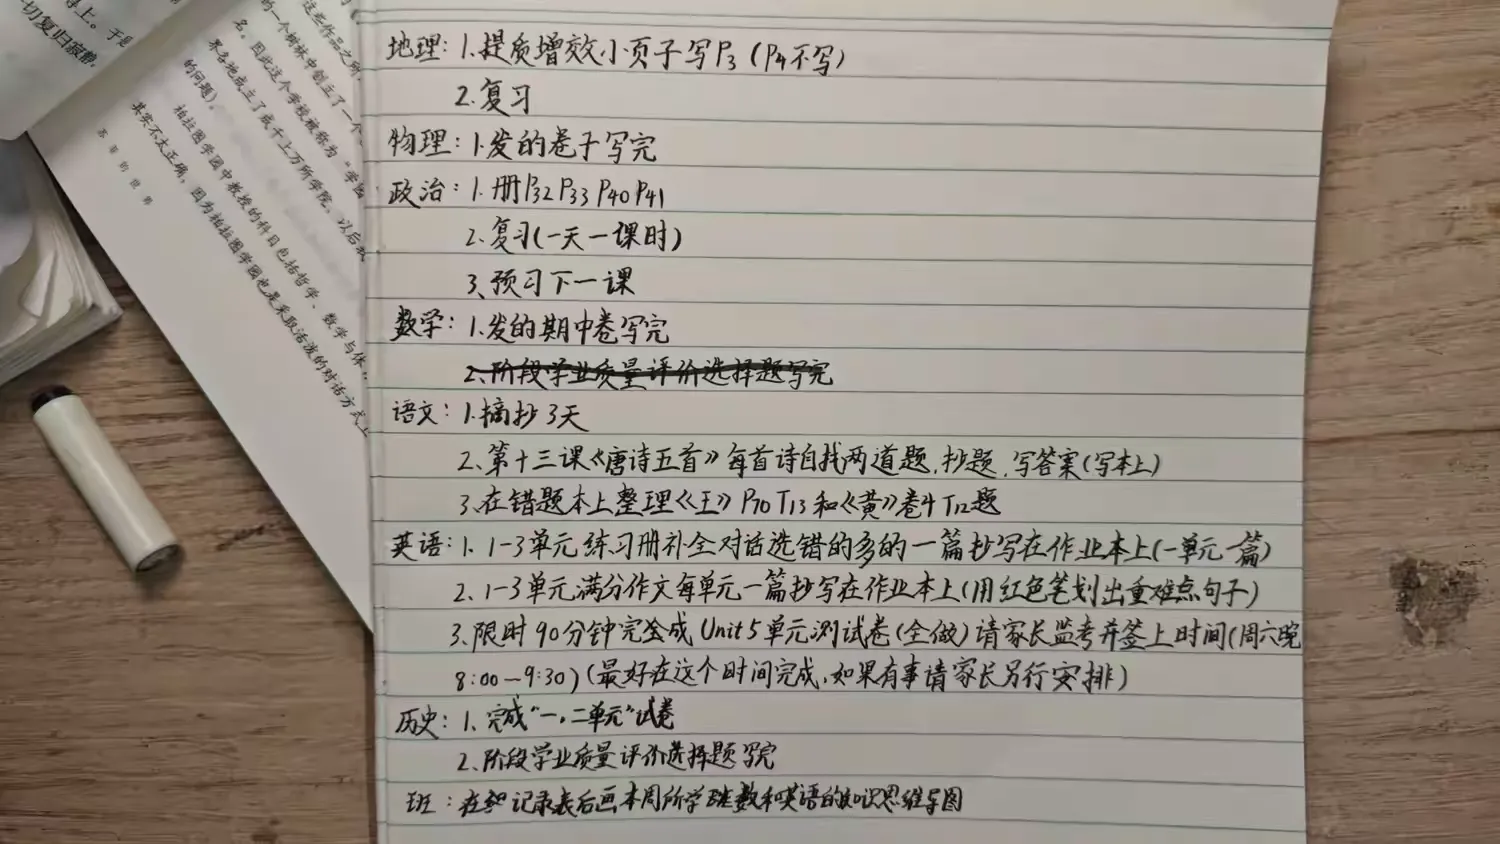 切复归寂静
的一个树林中创立了一个
名。因此这个学校被称为“学园
果各地成立了成千上万所学院，以后
的问题)。
柏拉图学园中教授的科目包括哲学、数学与体
其实不太正确，因为柏拉图学园也是采取活泼的对话方式上
苏菲的世界
地理：1.提质增效小页子写P3（P4不写）
2.复习
物理：1.发的卷子写完
政治：1.册P32 P33 P40 P41
2.复习(一天一课时)
3、预习下一课
数学：1.发的期中卷写完
2、阶段学业质量评价选择题写完
语文：1.摘抄3天
2、第十三课《唐诗五首》每首诗自找两道题，抄题，写答案(写本上)
3、在错题本上整理《王》P70 T13和《黄》卷4 T12题
英语：1、1-3单元练习册补全对话选错的多的一篇抄写在作业本上(一单元一篇)
2、1-3单元满分作文每单元一篇抄写在作业本上(用红色笔划出重难点句子)
3、限时90分钟完全成Unit5单元测试卷(全做)请家长监考并签上时间(周六晚
8:00—9:30)(最好在这个时间完成，如果有事请家长另行安排)
历史：1、完成“一，二单元”试卷
2、阶段学业质量评价选择题写完
班：在 记录表后画本周所学 数和英语的知识思维导图